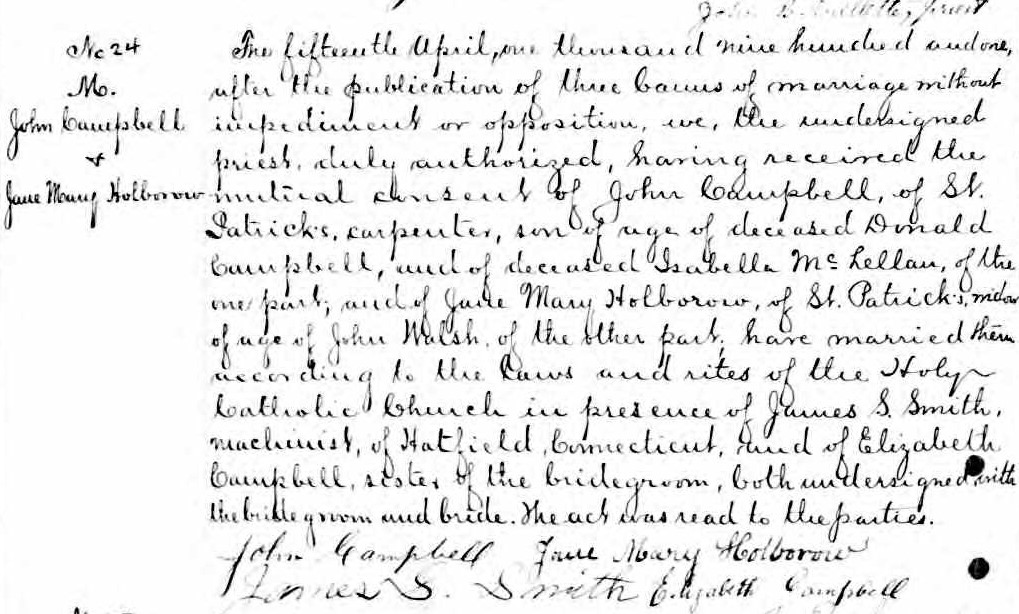 John B. priest
No 24
M.
John Campbell
&
Jane Mary Holborow
The fifteenth April, one thousand nine hundred and one,
after the publication of three banns of marriage without
impediment or opposition, we, the undersigned
priest, duly authorized, having received the
mutual consent of John Campbell, of St.
Patrick's, carpenter, son of age of deceased Donald
Campbell, and of deceased Isabella Mc Lellan, of the
one part; and of Jane Mary Holborow, of St. Patrick's, widow
of age of John Walsh, of the other part; have married them
according to the Laws and rites of the Holy
Catholic Church in presence of James S. Smith,
machinist, of Hatfield, Connecticut, and of Elizabeth
Campbell, sister of the bridegroom, both undersigned with
the bridegroom and bride. The act was read to the parties.
John Campbell Jane Mary Holborow
James S. Smith Elizabeth Campbell